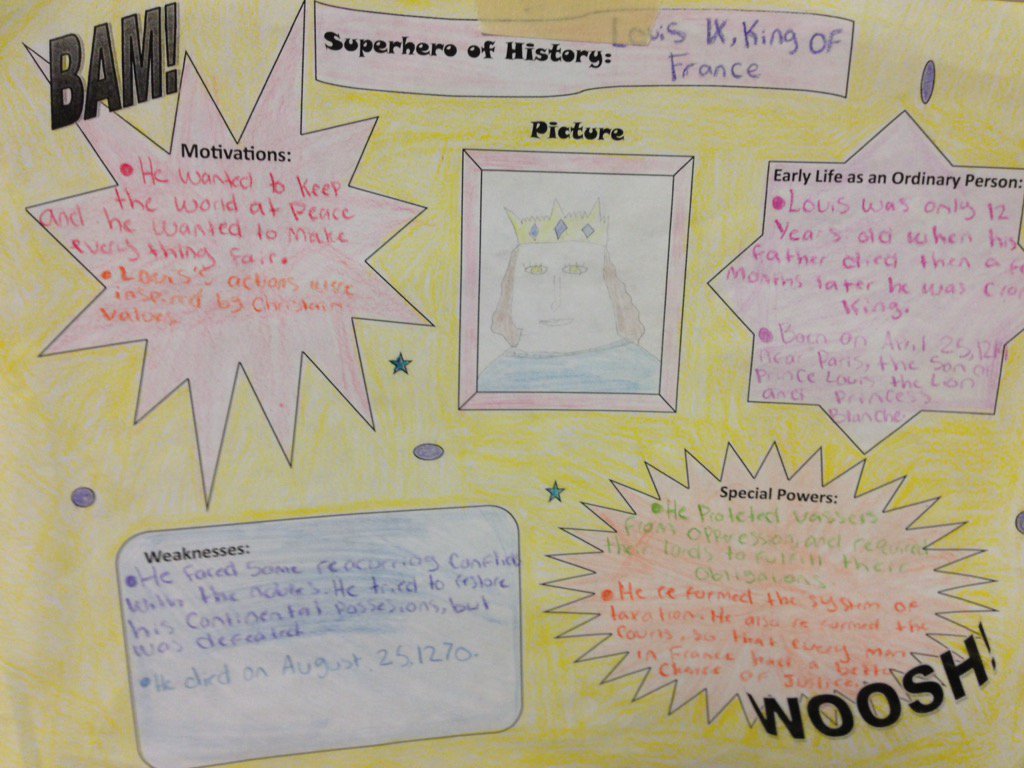 BAM!
Superhero of History: Louis IX, King of
France
Picture
Motivations:
• He wanted to keep
the world at Peace
and he wanted to make
every thing fair.
• Louis's actions were
inspired by Christain
values
Early Life as an Ordinary Person:
• Louis was only 12
Years old when his
father died then a
Months later he was
King.
• Born on April 25,
near Paris, the Son of
Prince Louis the Lion
and Princess
Blanche.
Weaknesses:
• He faced some reacurring
with the nobles. He tried to restore
his Continental Possesions, but
was defeated
• He died on August, 25, 1270.
Special Powers:
• He Proteted vassers
from oppression, and
their lords to fulfill their
Obligaions
• He reformed the system of
taxation. He also reformed the
Courts, so that every man
in France had a
Chance of Justice.
WOOSH!